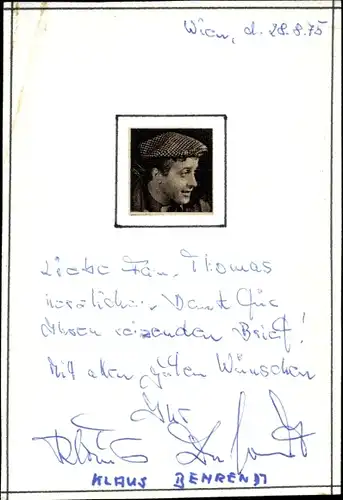 Wien, d. 28.8.75
Liebe Frau Thomas
herzlichen Dank für
Ihren reizenden Brief!
Mit allen guten Wünschen
Ihr
Klaus Behrendt
KLAUS BEHRENDT